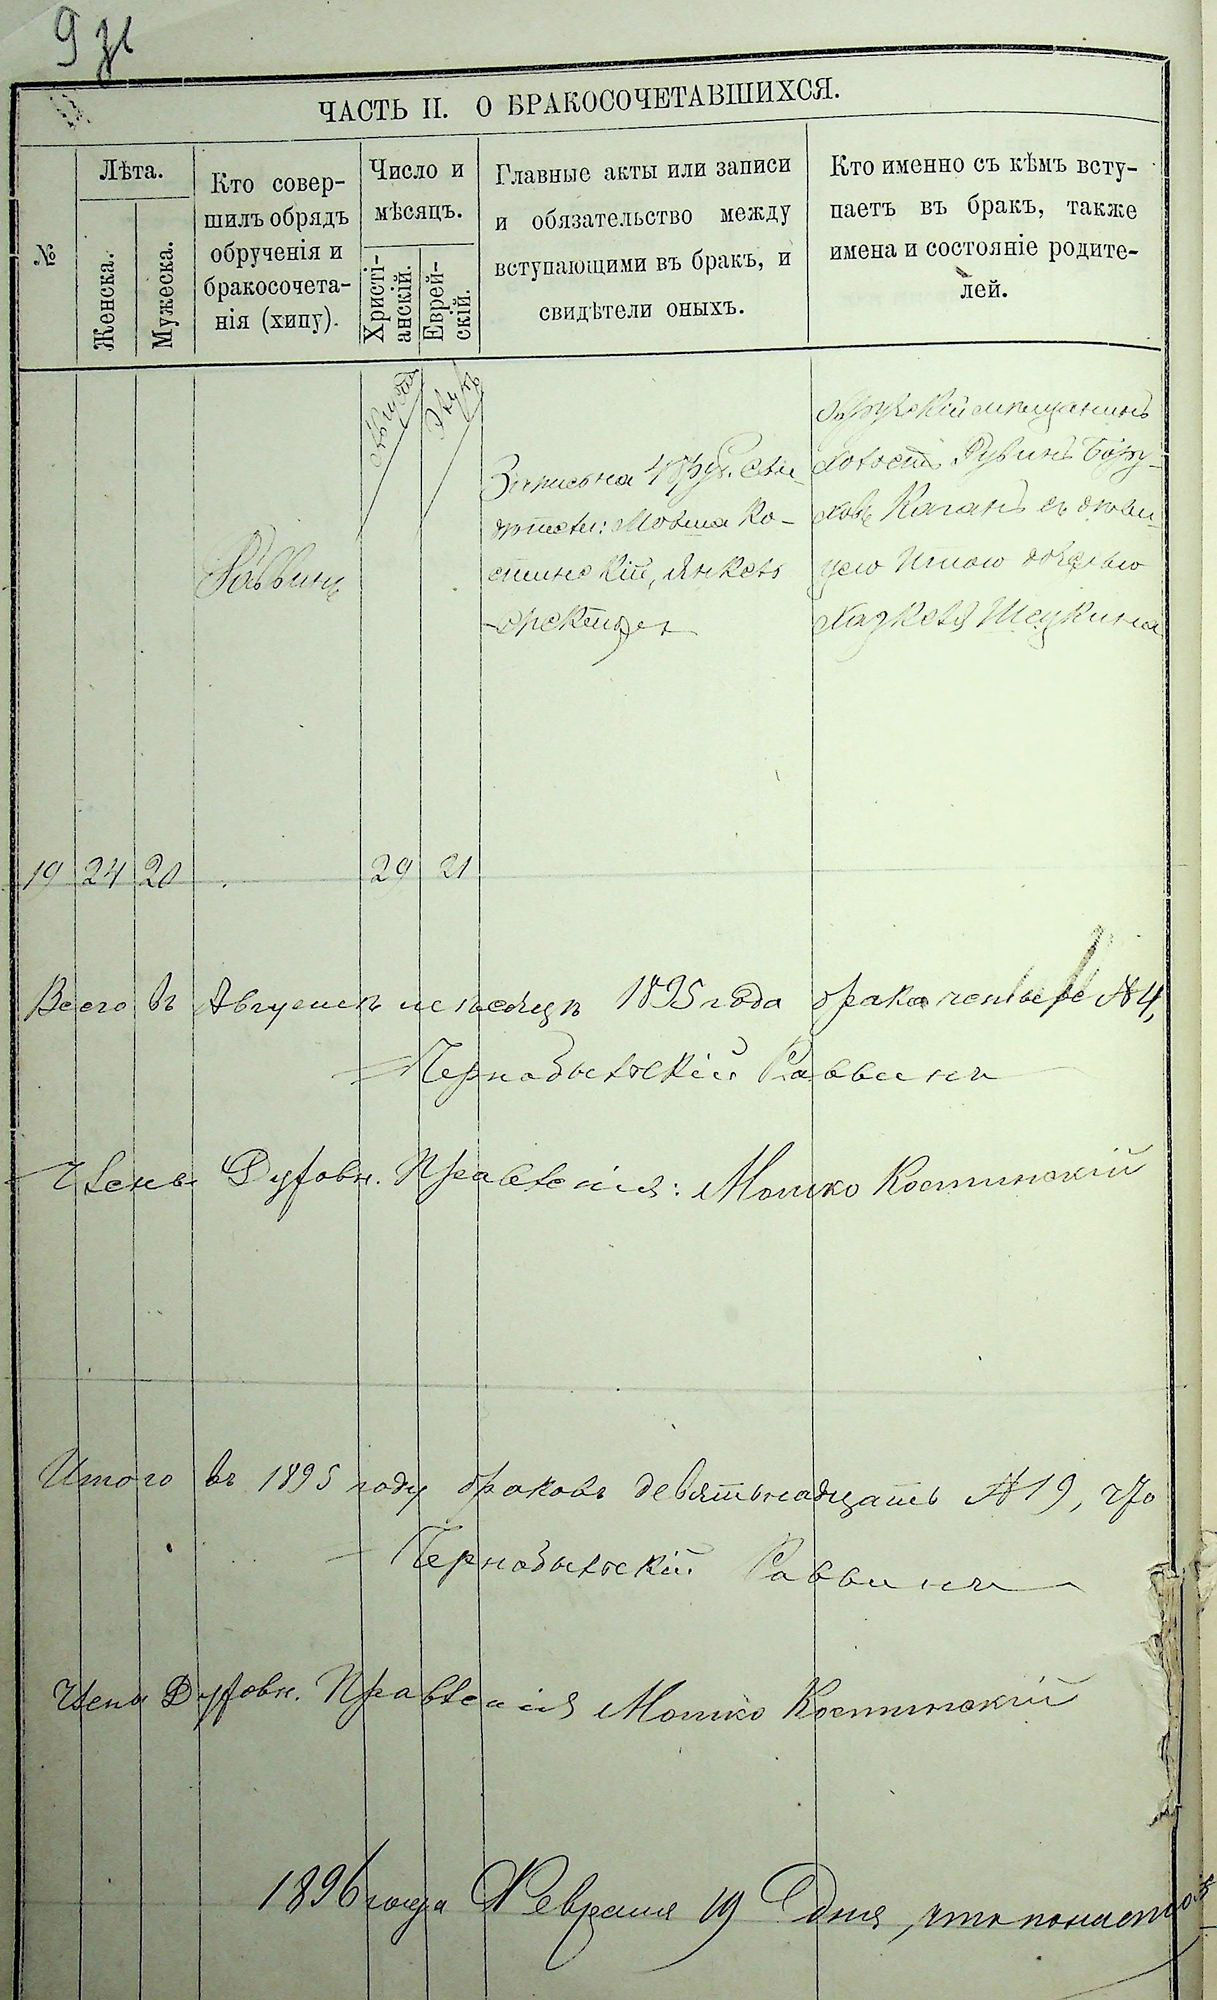 9
ЧАСТЬ II. О БРАКОСОЧЕТАВШИХСЯ.
№
Лѣта.
Женска.
Мужеска.
Кто совер-
шилъ обрядъ
обрученія и
бракосочета-
нія (хипу).
Число и
мѣсяцъ.
Христі-
анскій.
Еврей-
скій.
Главные акты или записи
и обязательство между
вступающими въ бракъ, и
свидѣтели оныхъ.
Кто именно съ кѣмъ всту-
паетъ въ бракъ, также
имена и состояніе родите-
лей.
Раввинъ
Августа
Элулъ
Запись на 48 руб. Сви-
дѣтели: Мовша Ко-
стинскій, Янкель
мѣщанинъ
Рувинъ Бору-
ховъ Каганъ съ дѣви-
цею Итою дочерью
Хацкеля
19 24 20 29 21
Всего въ Августѣ мѣсяцѣ 1895 года брака четыре №4,
Чернобыльскій Раввинъ
Члены Духовн. Правленія: Мошко Костинскій
Итого въ 1895 году браковъ девятьнадцать №19, что
Чернобыльскій Раввинъ
Члены Духовн. Правленія Мошко Костинскій
1896 года Февраля 19 дня, что